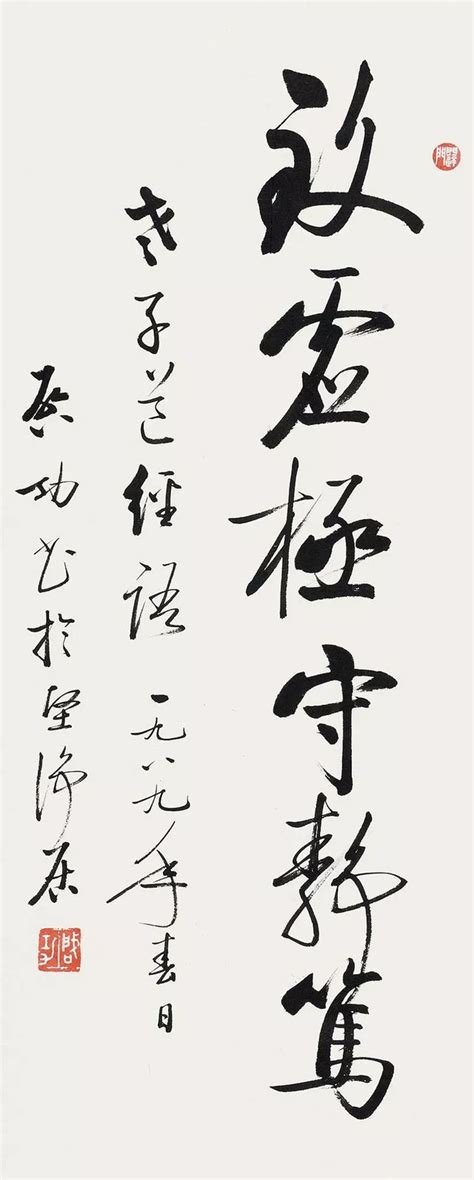 致虛極守静篤
老子道經語 一九八九年春日
啓功书於堅淨居
啟功